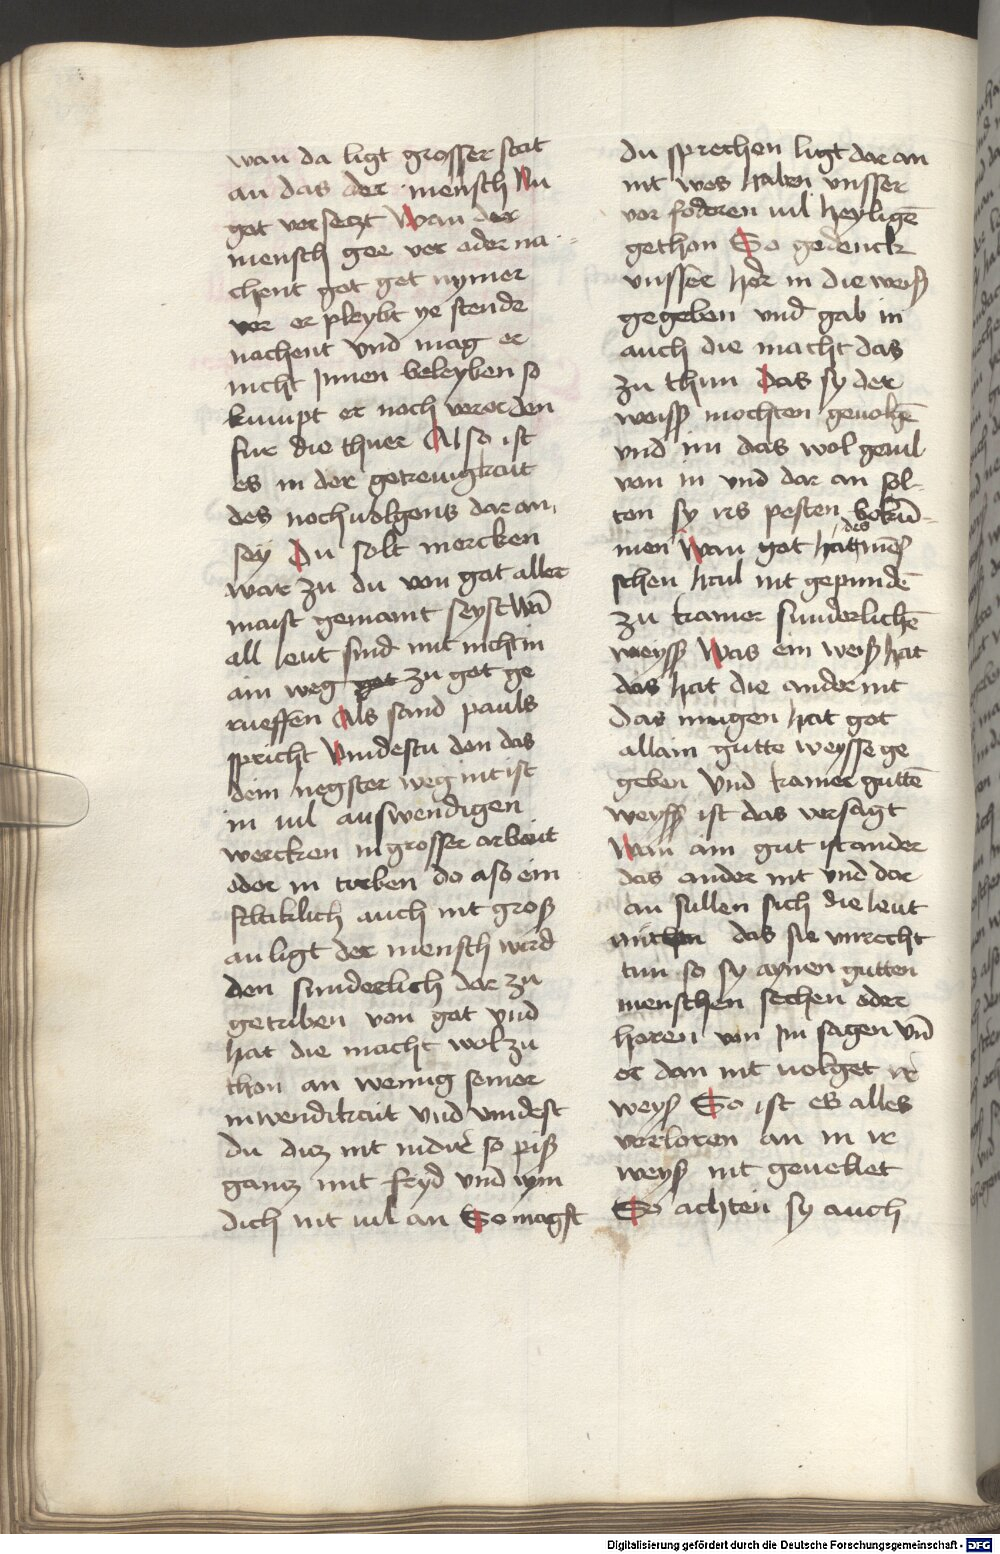 wan da ligt grosser scat
an das der mensch Nu
got versetzt Wan der
mensch gee ver oder na
chent got get nymer
ver er pleybt ye stende
nachent vnd mag er
nicht Innen beleyben so
kumpt er noch veror den
fur die thuer Also ist
es in der getreuigkait
des nochuolgens dar an
sey Du solt mercken
war zu du von got aller
maist gemant seyst Wā
all leut sind mit nicht in
ain weg got zu got ge
rueffen Als sand pauls
spricht Vindestu den das
dein negster weg nit ist
in uil auswendigen
wercken in grosser arbait
oder in derben do also ein
feltiklich auch nit groß
an ligt der mensch werd
den sunderlich dar zu
getriben von got vnd
hat die macht wol zu
thon an wenig seiner
inwendikait vnd vindest
du diz nit in dir so piß
gancz mit fryd vnd nym
dich nit uil an So magst
du sprechen ligt dar an
nit wes haben vnsser
vor foderen uil heyligē
gethon So gedenck
vnsser her in die weiß
gegeben vnd gab in
auch die macht das
zu thun Das sy der
weiß mochten geuolgē
vnd im das wol geuil
von in vnd dar an sol
ten sy irs pesten bekū
men Wan got hatt des mēs
schen hail nit gepundē
zu kainer sunderlichē
weyß Was ein weiß hat
das hat die ander nit
Das mugen hat got
allain gutte weysse ge
geben Vnd kainer guttē
weyß ist das versagt
Wan ain gut ist ander
das ander nit vnd dar
an sullen sich die leut
das sie vnrecht
tun so sy aynen gutten
menschen sechen oder
horen von Im sagen vn̄
er dan nit uolget ir
weyß So ist es alles
verloren an in ir
weyß nit geuellet
So achten sy auch
Digitalisierung gefördert durch die Deutsche Forschungsgemeinschaft - DFG